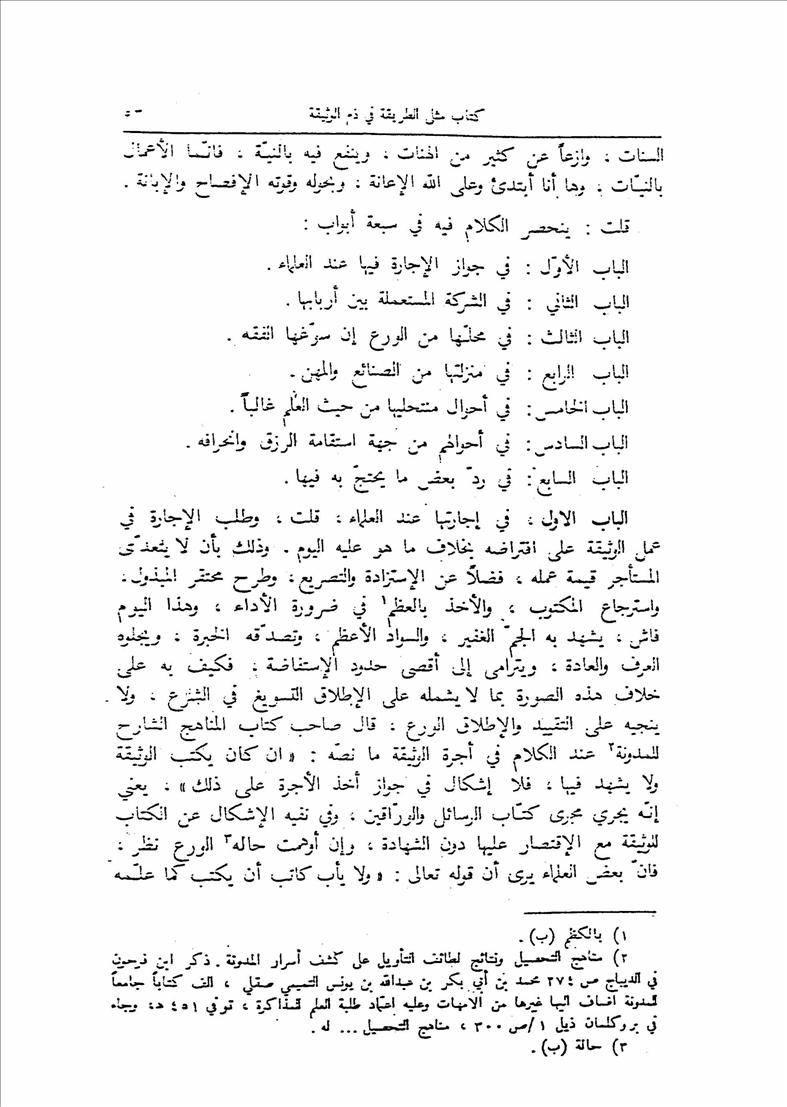 كتاب مثلى الطريقة في ذم الوثيقة
السنات ، وازعاً عن كثير من الهنات ، وينفع فيه بالنيّة ، فانّما الأعمال
بالنيّات ، وها أنا أبتدئ وعلى الله الإعانة ، وبحوله وقوته الإفصاح والإبانة .
قلت : ينحصر الكلام فيه في سبعة أبواب :
الباب الأوّل : في جواز الإجارة فيها عند العلماء .
الباب الثاني : في الشركة المستعملة بين أربابها .
الباب الثالث : في محلّها من الورع إن سوّغها الفقه .
الباب الرابع : في منزلتها من الصنائع والمهن .
الباب الخامس : في أحوال منتحليها من حيث العلم غالباً .
الباب السادس : في أحوالهم من جهة استقامة الرزق وانحرافه .
الباب السابع : في ردّ بعض ما يحتجّ به فيها .
الباب الاول ، في إجارتها عند العلماء ، قلت ، وطلب الإجارة في
عمل الوثيقة على افتراضه بخلاف ما هو عليه اليوم . وذلك بأن لا يتعدّى
المستأجر قيمة عمله ، فضلاً عن الإستزادة والتصريع ، وطرح محتقر المبذول ،
واسترجاع المكتوب ، والأخذ بالعظم١ في ضرورة الأداء ، وهذا اليوم
فاش ، يشهد به الجمّ الغفير ، والسواد الأعظم ، وتصدّقه الخبرة ، ويجلوه
العرف والعادة ، ويترامى إلى أقصى حدود الإستفاضة ، فكيف به على
خلاف هذه الصورة بما لا يشمله على الإطلاق التسويغ في الشرع ، ولا
ينجيه على التقييد والإطلاق الورع ، قال صاحب كتاب المناهج الشارح
للمدونة٢ عند الكلام في أجرة الوثيقة ما نصّه : « ان كان يكتب الوثيقة
ولا يشهد فيها ، فلا إشكال في جواز أخذ الأجرة على ذلك » ، يعني
إنّه يجري مجرى كتّاب الرسائل والورّاقين ، وفي نفيه الإشكال عن الكتاب
للوثيقة مع الإقتصار عليها دون الشهادة ، وإن أوهمت حاله٣ الورع نظر ،
فانّ بعض العلماء يرى أن قوله تعالى : « ولا يأب كاتب أن يكتب كما علّمه
١) بالكظم (ب) .
٢) مناهج التحصيل ونتائج لطائف التأويل على كشف أسرار المدونة . ذكر ابن فرحون
في الديباج ص ٢٧٤ محمد بن أبي بكر بن عبدالله بن يونس التميمي صقلي ، الف كتاباً جامعاً
للمدونة اضاف اليها غيرها من الامهات وعليه اعتماد طلبة العلم للمذاكرة ، توفي ٤٥١ ه ، وجاء
في بروكلمان ذيل ١/ص ٣٠٠ ، مناهج التحصيل ... له .
٣) حالة (ب) .